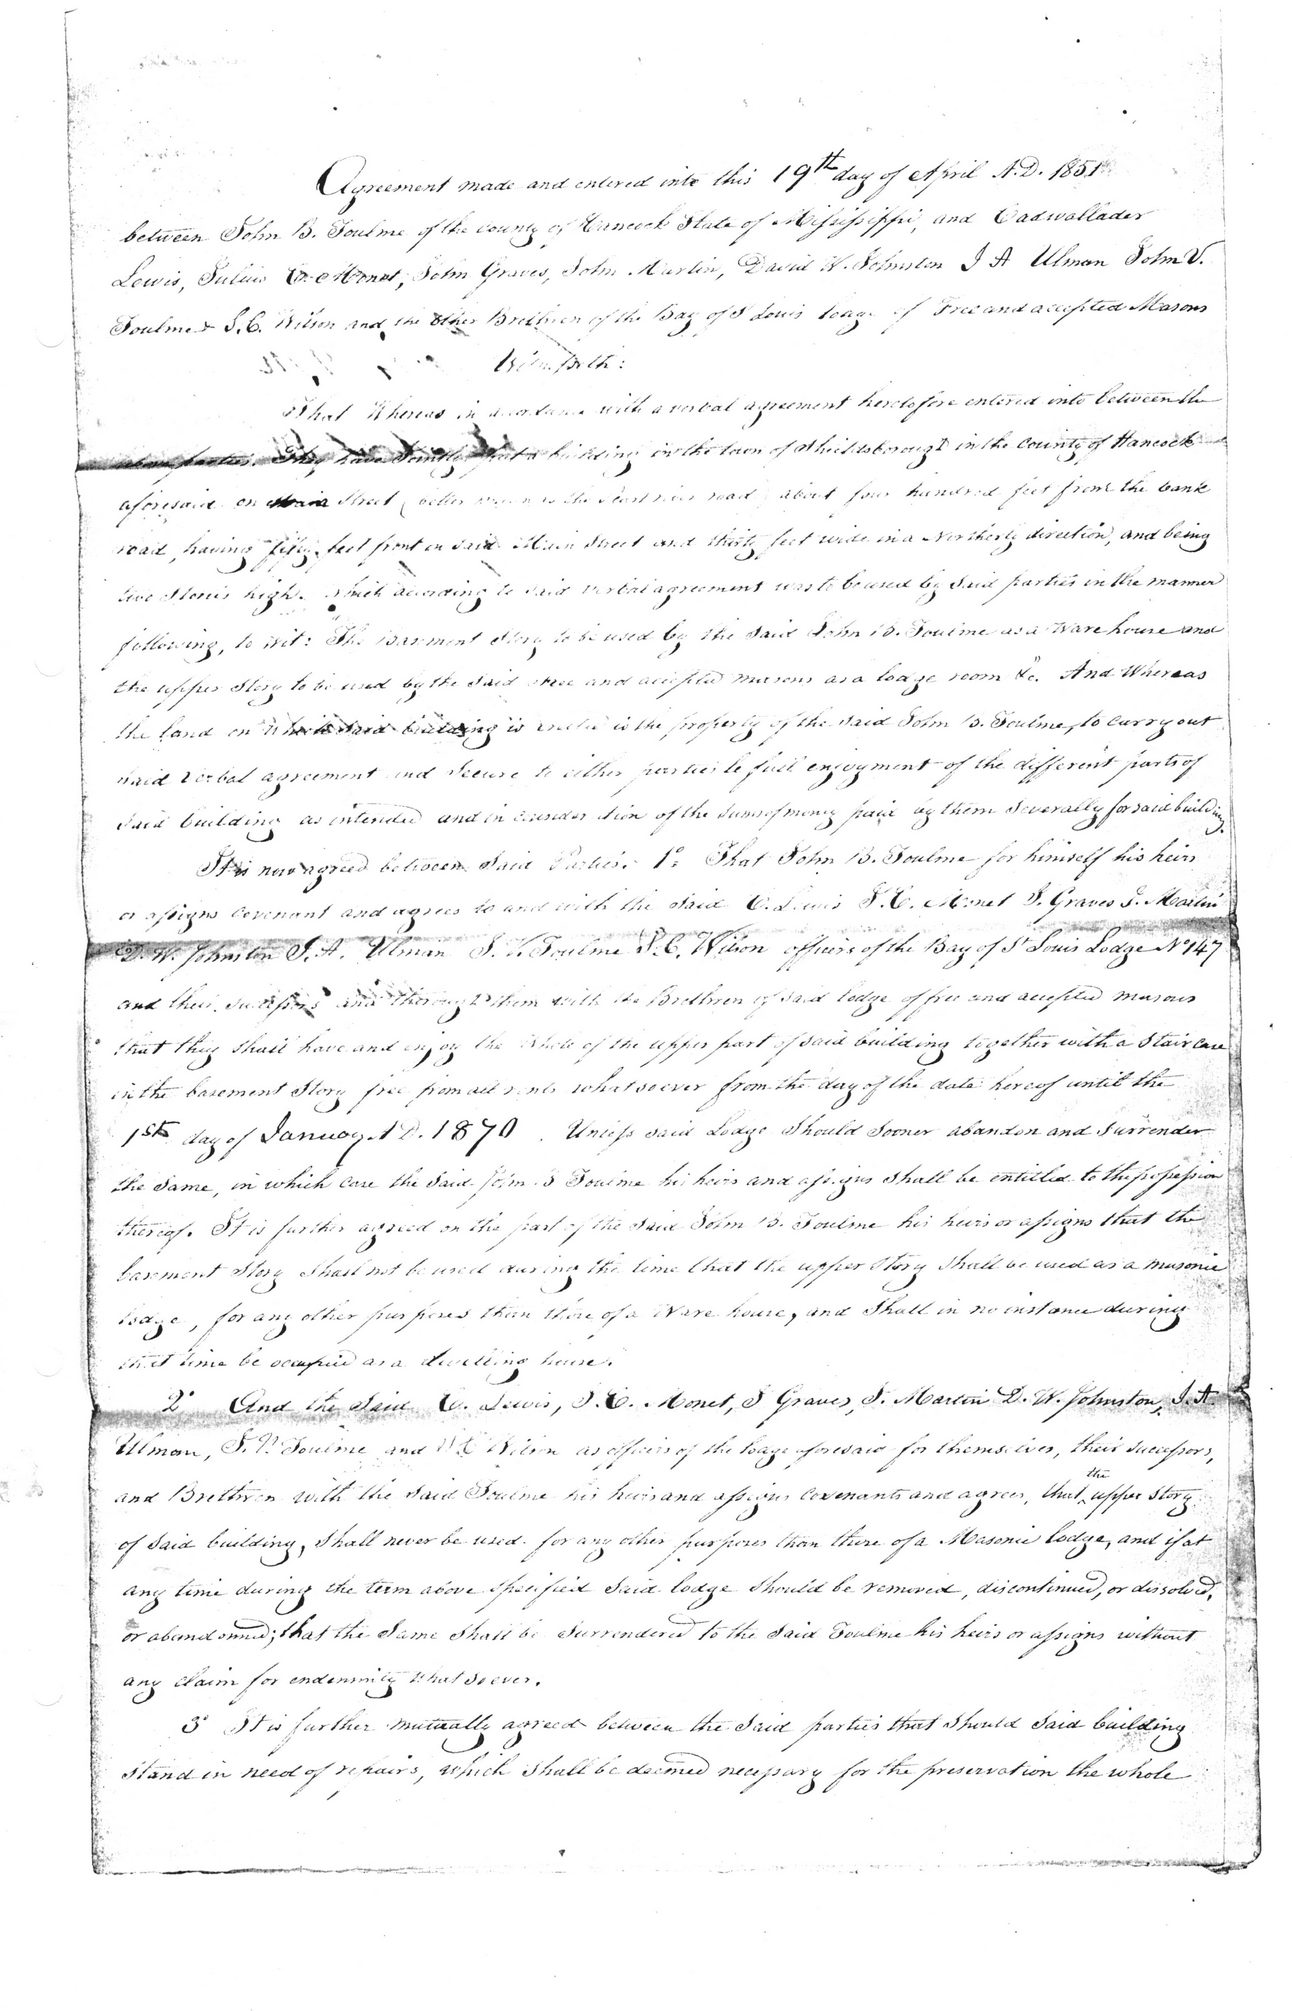 Agreement made and entered into this 19th day of April A.D. 1851
between John B. Toulme of the county of Hancock State of Mississippi, and Cadwallader
Lewis, Julius C. Monet, John Graves, John Martin, David W. Johnston J A Ulman John V.
Toulme & S. C. Wilson and the other Brethren of the Bay of St Louis lodge of Free and accepted Masons
Witnesseth:
That Whereas in accordance with a verbal agreement heretofore entered into between the
above parties. They have jointly built a building in the town of Shieldsborough in the county of Hancock
aforesaid on Main Street, better known as the Pearl river road, about four hundred feet from the bank
road, having fifty feet front on said Main Street and thirty feet wide in a Northerly direction, and being
two stories high. which according to said verbal agreement was to be used by said parties in the manner
following, to wit: The Basment Story to be used by the said John B. Toulme as a Ware house and
the upper Story to be used by the said free and accepted masons as a lodge room &c. And Whereas
the land on which said building is erected is the property of the said John B. Toulme, to carry out
said verbal agreement and secure to either parties le full enjoyment of the different parts of
said building as intended and in consideration of the sums of money paid by them severally for said building.
It is now agreed between said Parties. 1o That John B. Toulme for himself his heirs
or assigns covenant and agrees to and with the said C. Lewis J. C. Monet J. Graves J. Martin
D. W. Johnston J. A. Ulman J. V. Toulme S. C. Wilson officers of the Bay of St Louis Lodge No 147
and their successors and through them with the Brethren of said lodge of free and accepted masons
that they shall have and enjoy the whole of the upper part of said building together with a Stair Case
in the basement Story free from all rents whatsoever from the day of the date hereof until the
1st day of January A D. 1870. Unless said Lodge Should Sooner abandon and Surrender
the same, in which case the said John B Toulme his heirs and assigns shall be entitled to the possession
thereof. It is further agreed on the part of the said John B. Toulme his heirs or assigns that the
basement Story Shall not be used during the time that the upper Story Shall be used as a masonic
lodge, for any other purposes than those of a Ware house, and Shall in no instance during
that time be occupied as a dwelling house.
2o And the Said C. Lewis, J. C. Monet, J Graves, J. Martin D. W. Johnston, J. A
Ulman, J. V. Toulme and S C Wilson as officers of the lodge aforesaid for themselves, their successors,
and Brethren with the said Toulme his heirs and assigns covenants and agrees, that the upper Story
of said building, Shall never be used for any other purposes than those of a Masonic lodge, and if at
any time during the term above specified said lodge should be removed, discontinued, or dissolved,
or abandonned; that the Same Shall be Surrendered to the said Toulme his heirs or assigns without
any claim for endemnity whatsoever.
3o It is further mutually agreed between the said parties that should said building
Stand in need of repairs, which shall be deemed necessary for the preservation the whole